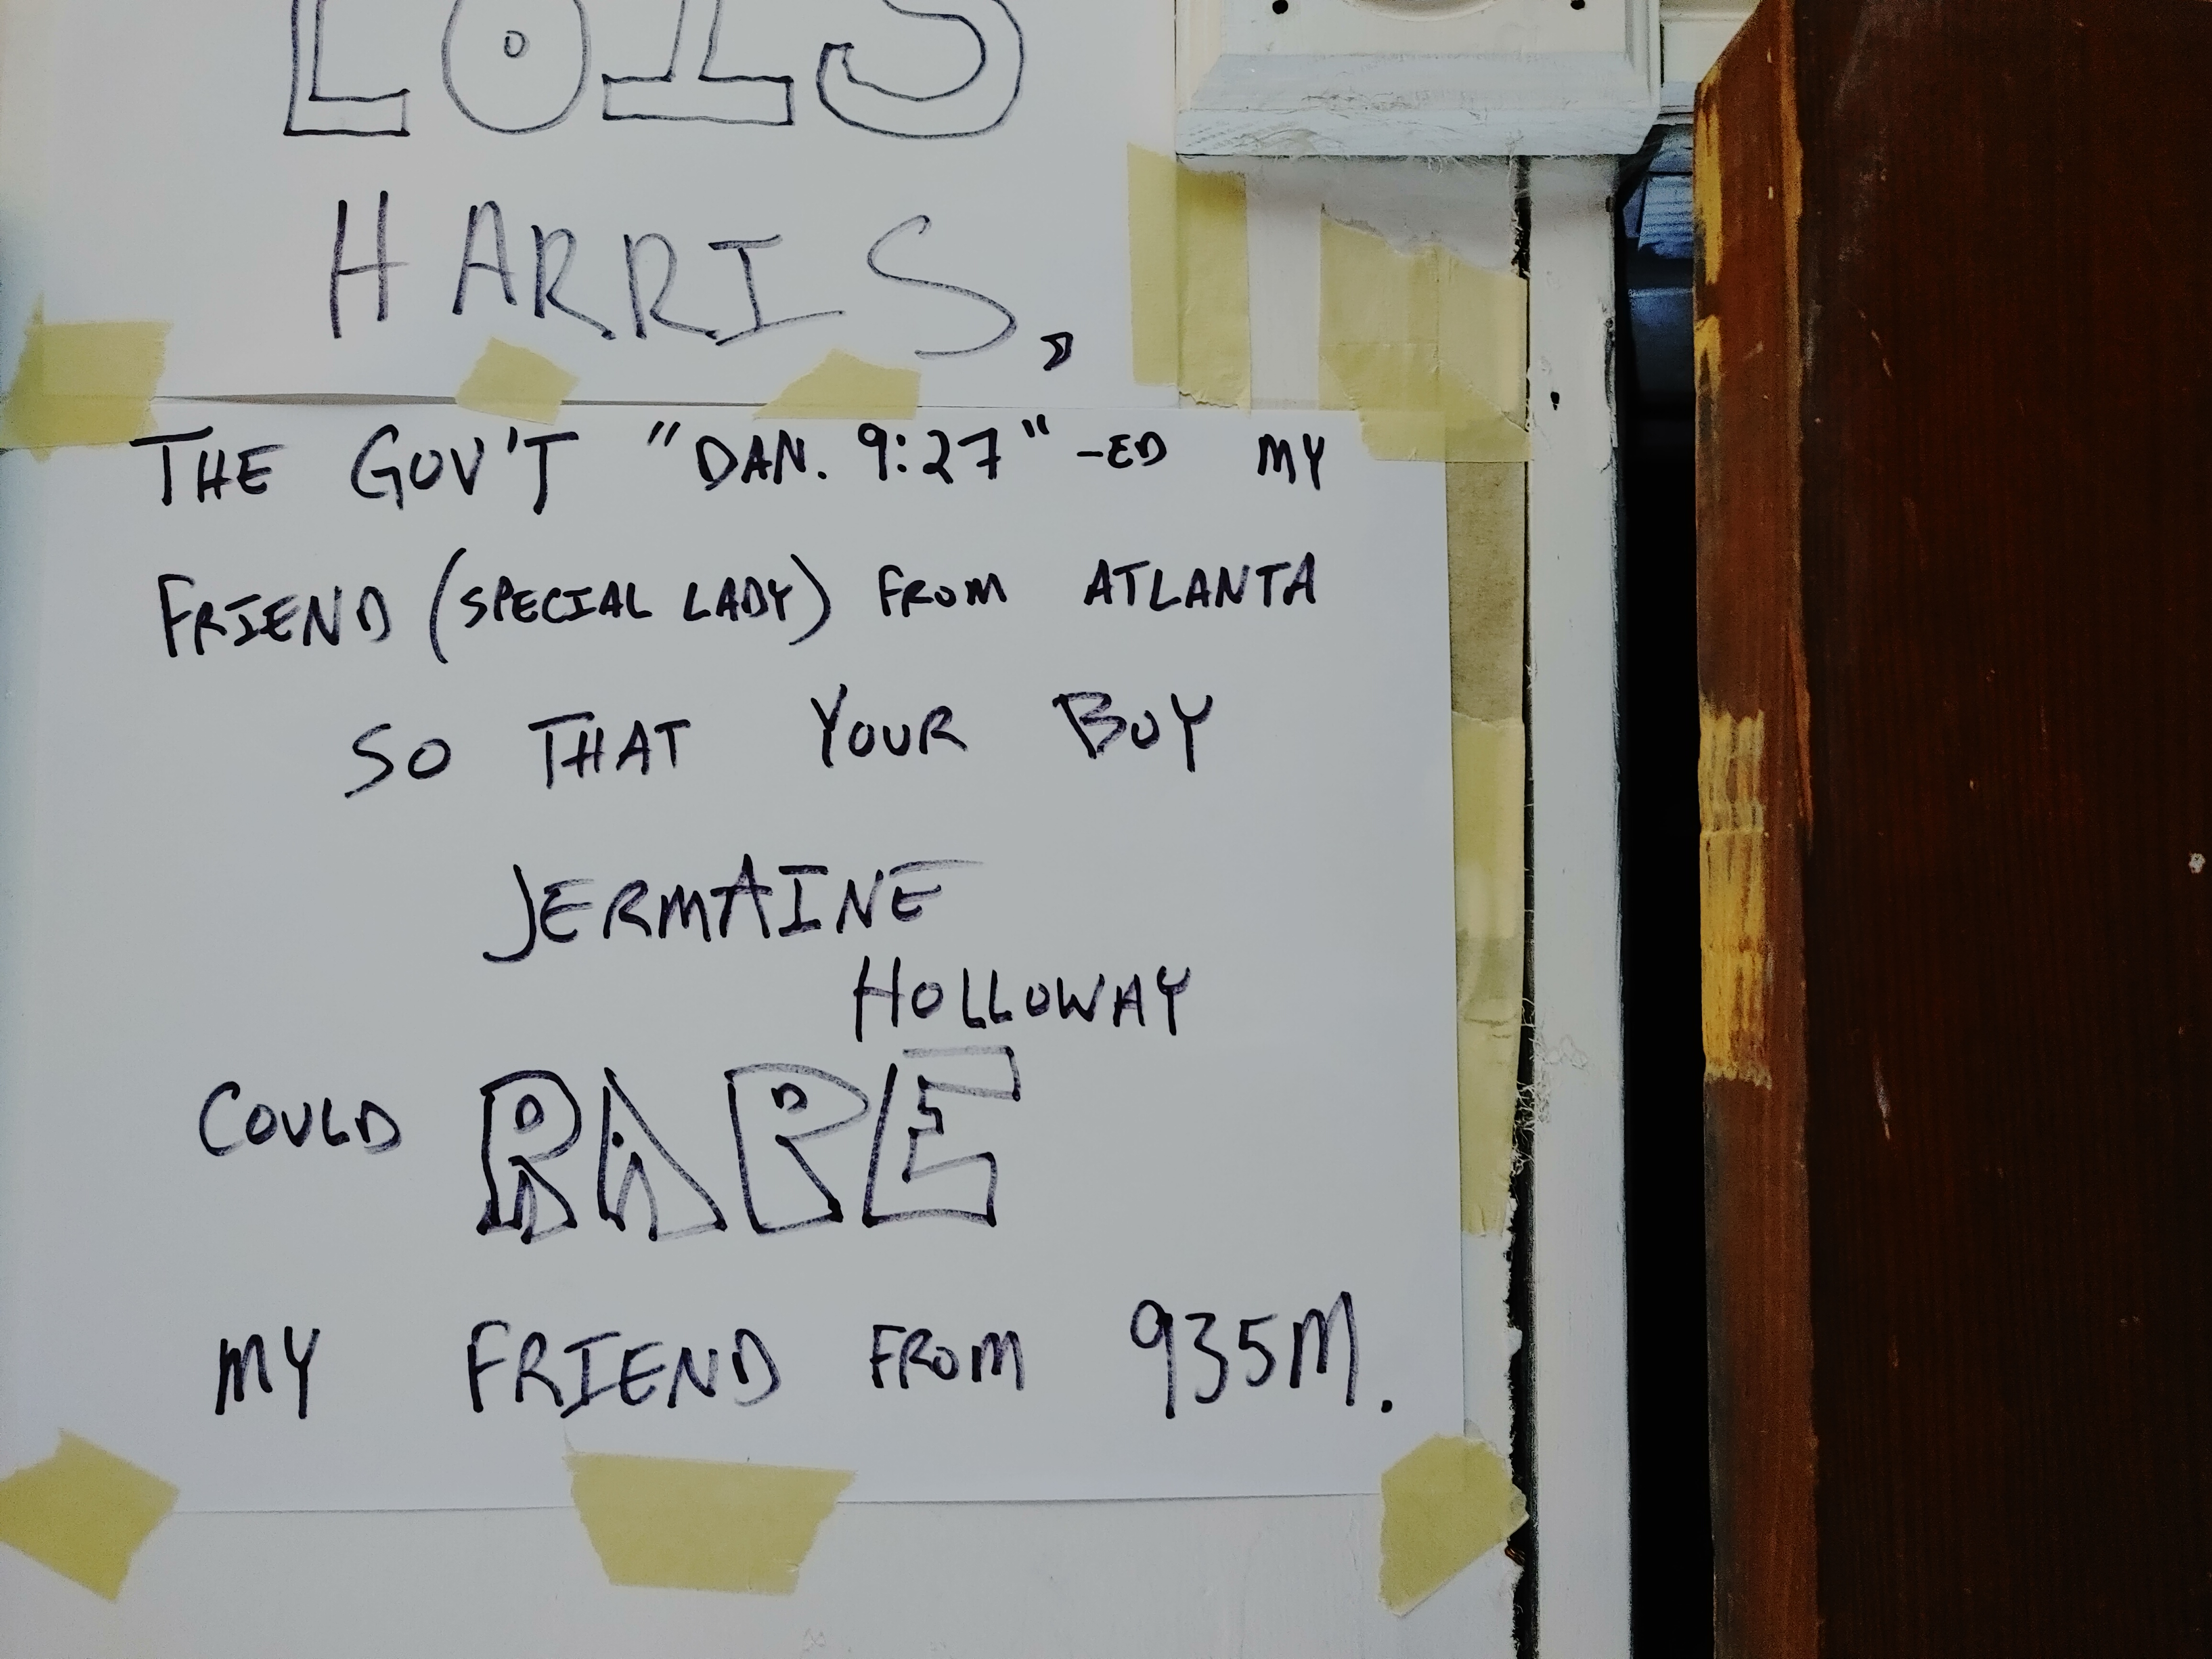 LOIS
HARRIS,
THE GOV'T "DAN. 9:27"-ED MY
FRIEND (SPECIAL LADY) FROM ATLANTA
SO THAT YOUR BOY
JERMAINE
HOLLOWAY
COULD RAPE
MY FRIEND FROM 935M.